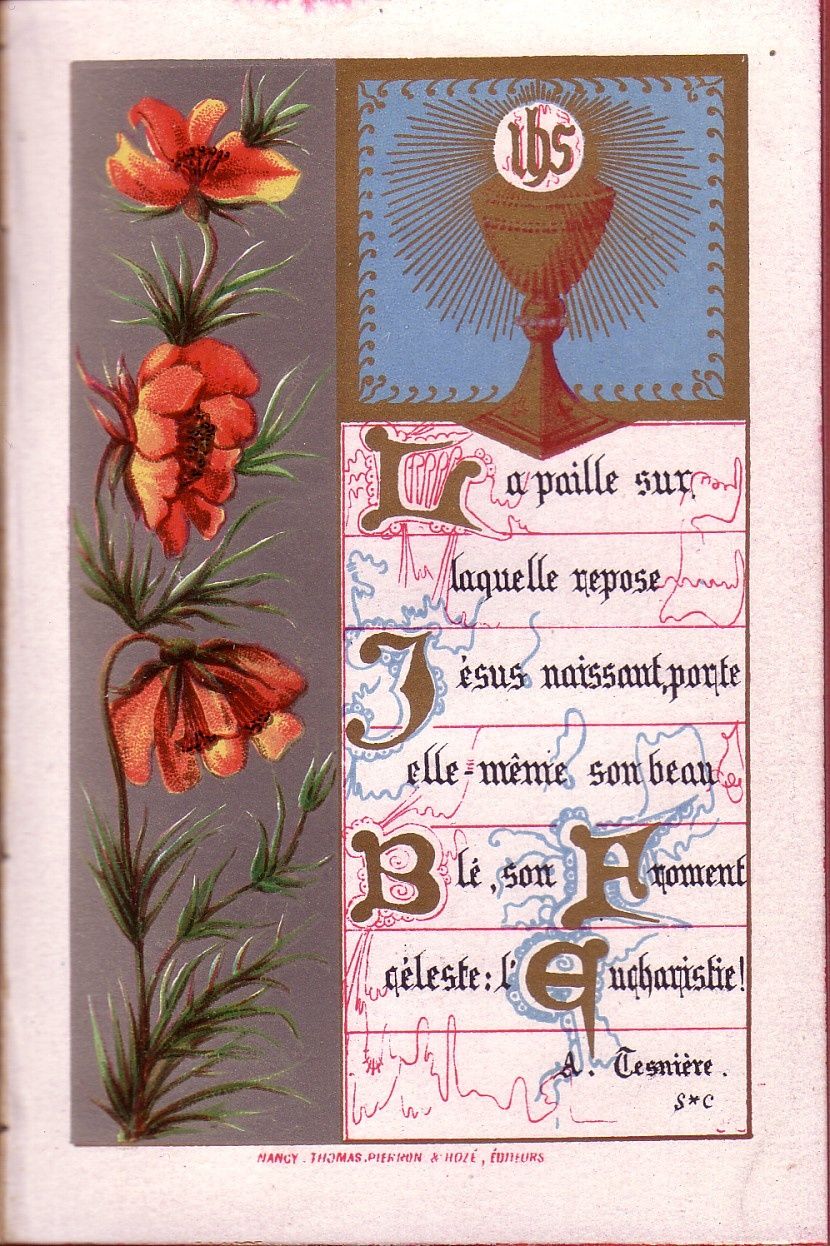 ihs
La paille sur
laquelle repose
Jésus naissant, porte
elle-même son beau
Blé, son Froment
céleste: l'Eucharistie!
A. Tesnière.
S*C
NANCY. THOMAS, PIERRON & HOZÉ, ÉDITEURS